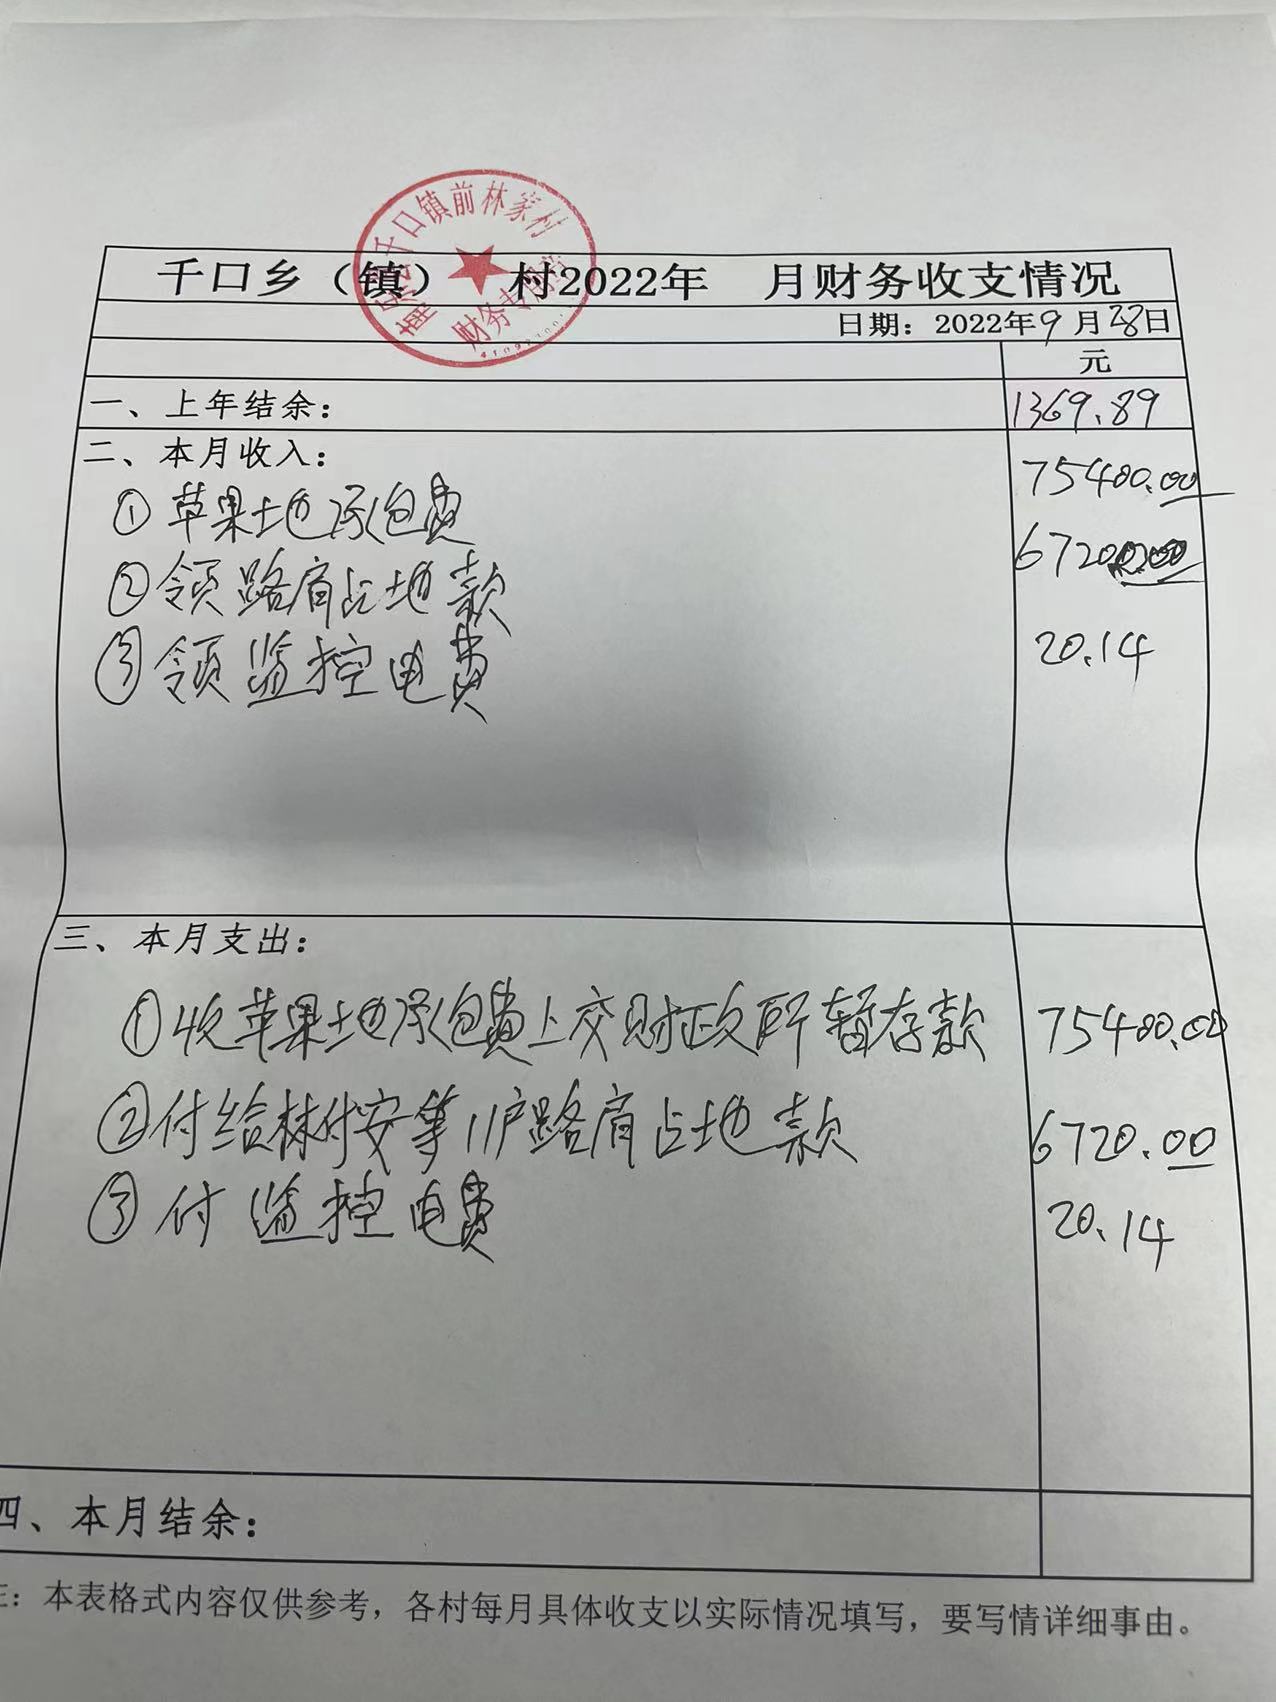 千口镇前林家村
财务专用章
千口乡（镇） 村2022年 月财务收支情况
日期：2022年9月28日
元
一、上年结余： 1369.89
二、本月收入：
①苹果土地承包费 75400.00
②领路肩占地款 6720.00
③领监控电费 20.14
三、本月支出：
①收苹果土地承包费上交财政所暂存款 75400.00
②付给林付安等11户路肩占地款 6720.00
③付监控电费 20.14
四、本月结余：
注：本表格式内容仅供参考，各村每月具体收支以实际情况填写，要写情详细事由。